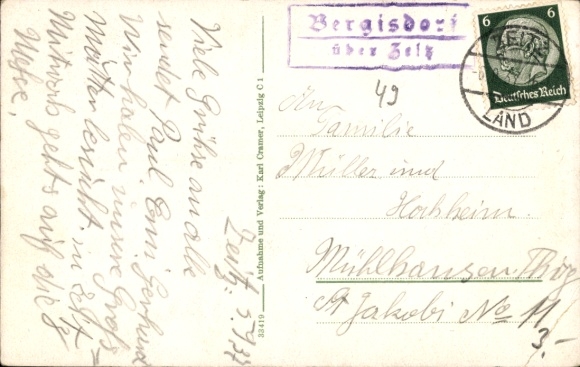 Bergisdorf
über Zeitz
6 6
Deutsches Reich
ZEITZ
LAND
49
An
Familie
Müller und
Hochheim.
Mühlhausen Thür
St Jakobi No 11
3.
Zeitz. 5/7 37
Viele Grüße an alle
sendet Paul Erni Gerhard
Wir haben unsere Groß=
mutter besucht in Zeitz
Mittwoch gehts auf die
Messe,
Aufnahme und Verlag: Karl Cramer, Leipzig C 1
33419